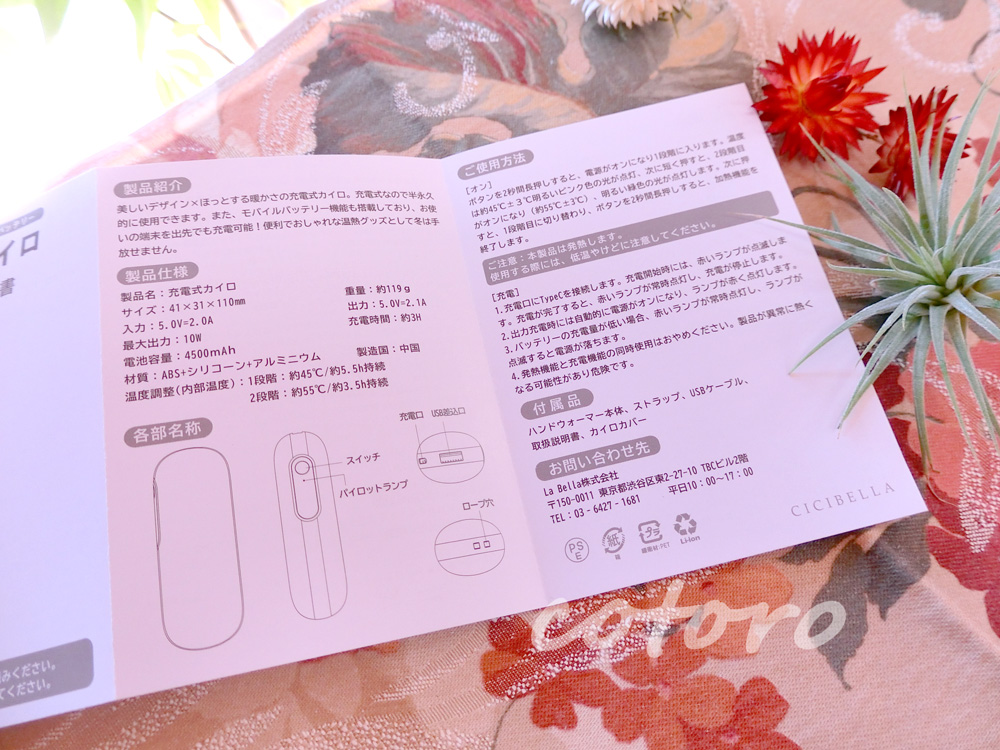 カイロ
書
みください。
てください。
製品紹介
美しいデザイン×ほっとする暖かさの充電式カイロ。充電式なので半永久
的に使用できます。また、モバイルバッテリー機能も搭載しており、お使
いの端末を出先でも充電可能！便利でおしゃれな温熱グッズとして冬は手
放せません。
製品仕様
製品名：充電式カイロ
サイズ：41×31×110mm
重量：約119g
入力：5.0V=2.0A
出力：5.0V=2.1A
最大出力：10W
充電時間：約3H
電池容量：4500mAh
材質：ABS+シリコーン+アルミニウム
製造国：中国
温度調整(内部温度)：1段階：約45℃/約5.5h持続
2段階：約55℃/約3.5h持続
各部名称
スイッチ
パイロットランプ
充電口 USB差込口
ロープ穴
ご使用方法
[オン]
ボタンを2秒間長押しすると、電源がオンになり1段階に入ります。温度
は約45℃±3℃明るいピンク色の光が点灯、次に短く押すと、2段階目
がオンになり（約55℃±3℃）、明るい緑色の光が点灯します。次に押
すと、1段階目に切り替わり、ボタンを2秒間長押しすると、加熱機能を
終了します。
ご注意：本製品は発熱します。
使用する際には、低温やけどに注意してください。
[充電]
1.充電口にTypeCを接続します。充電開始時には、赤いランプが点滅しま
す。充電が完了すると、赤いランプが常時点灯し、充電が停止します。
2.出力充電時には自動的に電源がオンになり、ランプが赤く点灯します。
3.バッテリーの充電量が低い場合、赤いランプが常時点灯し、ランプが
点滅すると電源が落ちます。
4.発熱機能と充電機能の同時使用はおやめください。製品が異常に熱く
なる可能性があり危険です。
付属品
ハンドウォーマー本体、ストラップ、USBケーブル、
取扱説明書、カイロカバー
お問い合わせ先
La Bella株式会社
〒150-0011 東京都渋谷区東2-27-10 TBCビル2階
TEL：03-6427-1681 平日10：00〜17：00
CICIBELLA
PS
E
紙
箱
プラ
緩衝材:PET
Li-ion
cotoro